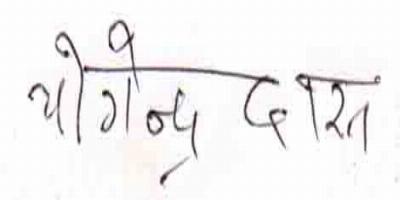 योगेन्द्र दास